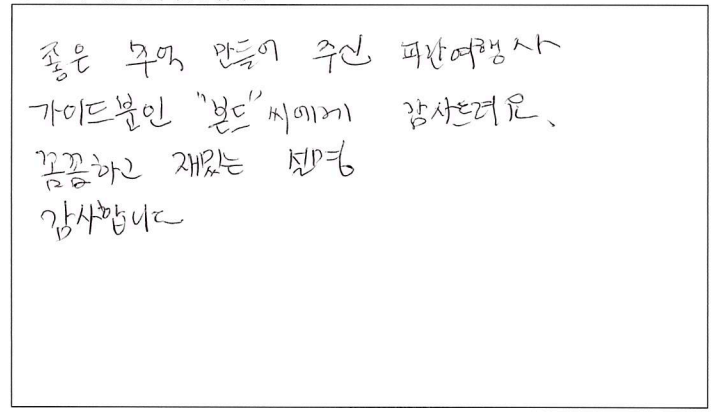 좋은 추억 만들어 주신 파란여행사
가이드분인 "본드"씨에게 감사드려요.
꼼꼼하고 재밌는 설명
감사합니다